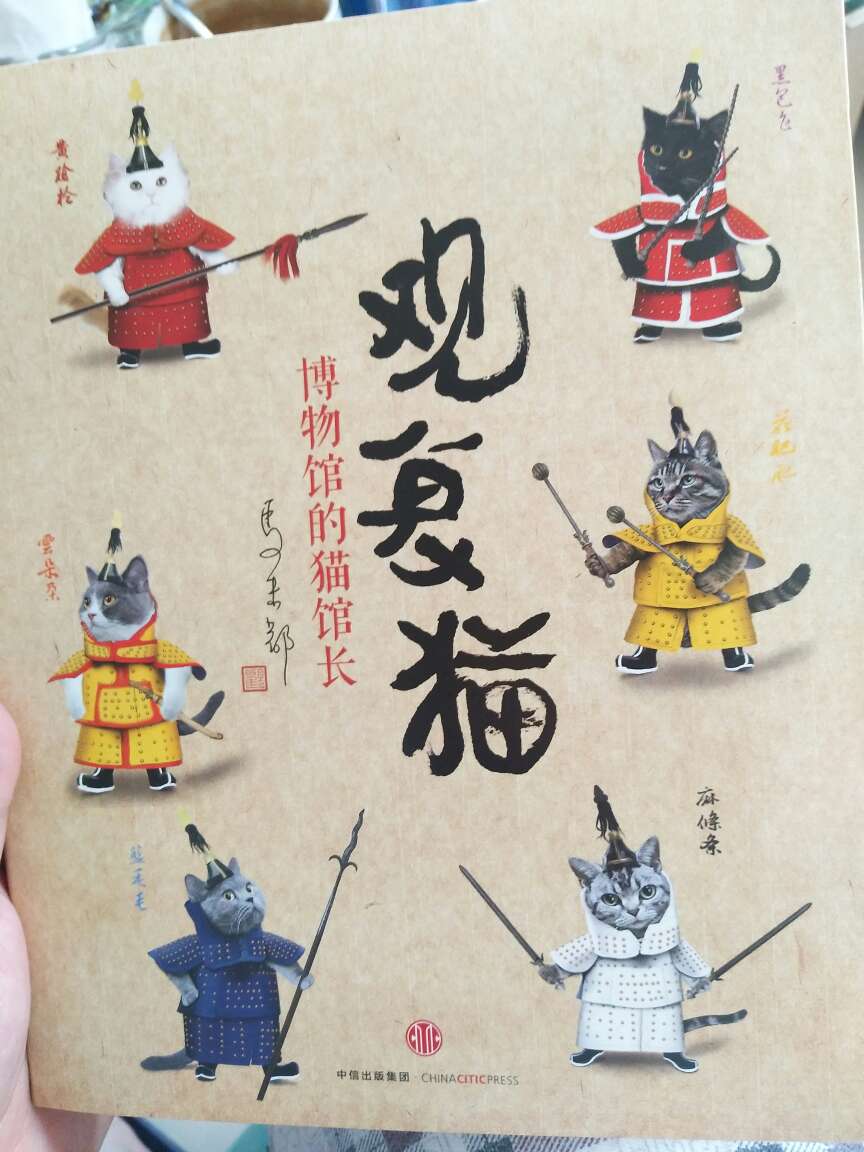 黄槍枪
黑包包
观复猫
博物馆的猫馆长
馬未都
花肥肥
雲朵朵
藍毛毛
麻條条
中信出版集团·CHINACITICPRESS